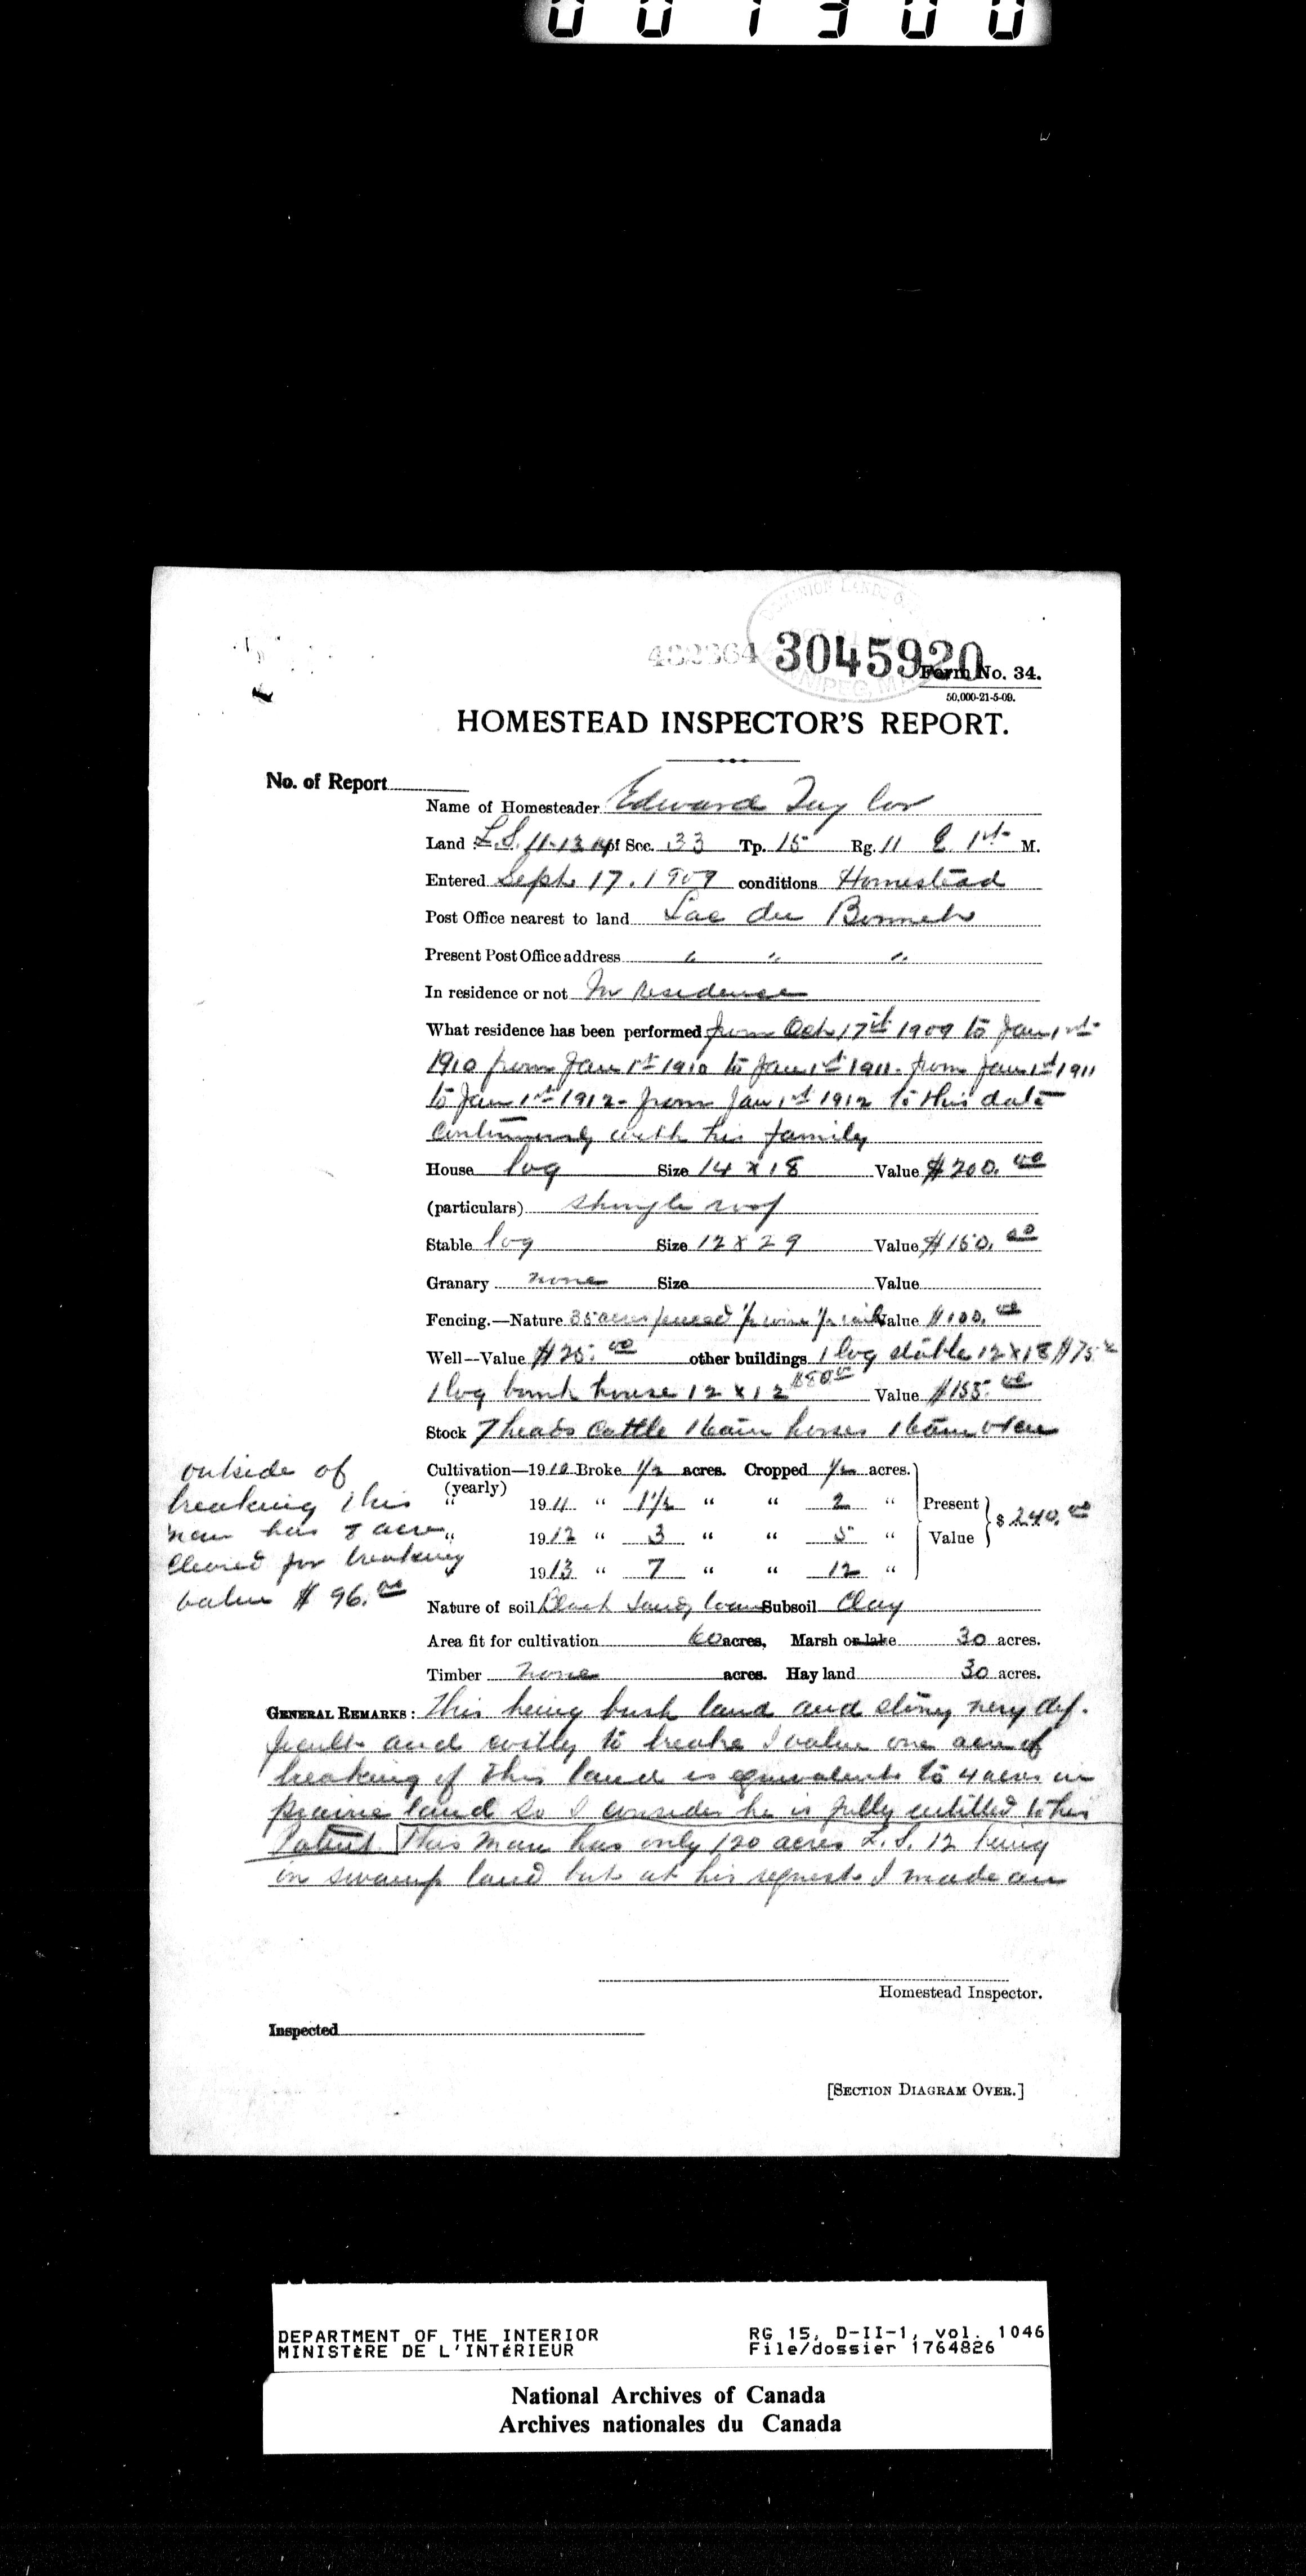 001300
3045920
Form No. 34.
50,000-21-5-09.
HOMESTEAD INSPECTOR'S REPORT.
No. of Report
Name of Homesteader Edward Taylor
Land L.S. 11-13-14 of Sec. 33 Tp. 15 Rg. 11 E 1st M.
Entered Sept. 17. 1909 conditions Homestead
Post Office nearest to land Lac du Bonnet
Present Post Office address " " "
In residence or not In residence
What residence has been performed from Oct 17th 1909 to Jan 1st
1910 from Jan 1st 1910 to Jan 1st 1911. from Jan 1st 1911
to Jan 1st 1912 - from Jan 1st 1912 to this date
continuously with his family
House log Size 14 x 18 Value $200.00
(particulars) shingle roof
Stable log Size 12 x 29 Value $150.00
Granary none Size Value
Fencing.—Nature 35 acres fenced 1/2 wire 1/2 rail Value $100.00
Well—Value $25.00 other buildings 1 log stable 12 x 18 $75.00
1 log bunk house 12 x 12 $80.00 Value $155.00
Stock 7 heads cattle 1 team horses 1 team oxen
Cultivation—1910 Broke 1/2 acres. Cropped 1/2 acres.
(yearly) " 1911 " 1 1/2 " " 2 " Present
" 1912 " 3 " " 5 " Value $ 240.00
1913 " 7 " " 12 "
outside of
breaking this
man has 8 acres
cleared for breaking
value $ 96.00
Nature of soil Black Sandy loam Subsoil Clay
Area fit for cultivation 60 acres, Marsh or lake 30 acres.
Timber none acres. Hay land 30 acres.
GENERAL REMARKS: This being bush land and stony very dif-
ficult and costly to breake I value one acre of
breaking of this land is equivalent to 4 acres in
prairie land so I consider he is fully entitled to his
Patent This man has only 120 acres L.S. 12 being
in swamp land but at his request I made an
Homestead Inspector.
Inspected
[SECTION DIAGRAM OVER.]
DEPARTMENT OF THE INTERIOR RG 15, D-II-1, vol. 1046
MINISTÈRE DE L'INTÉRIEUR File/dossier 1764826
National Archives of Canada
Archives nationales du Canada